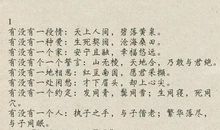 1
有没有一段情：天上人间，碧落黄泉。
有没有一种爱：生死契阔，沧海桑田。
有没有一个家：安宁且融，幸福悠远。
有没有一个警言：山无棱，天地合，乃敢与君绝。
有没有一地相思：红豆南国，愿君采撷。
有没有一处闲愁：才下眉头，却上心尖。
有没有一个约定：发用青，鬓用雪；生同寝，死同穴。
有没有一个人：执子之手，与子偕老；繁华落尽，与子同眠。